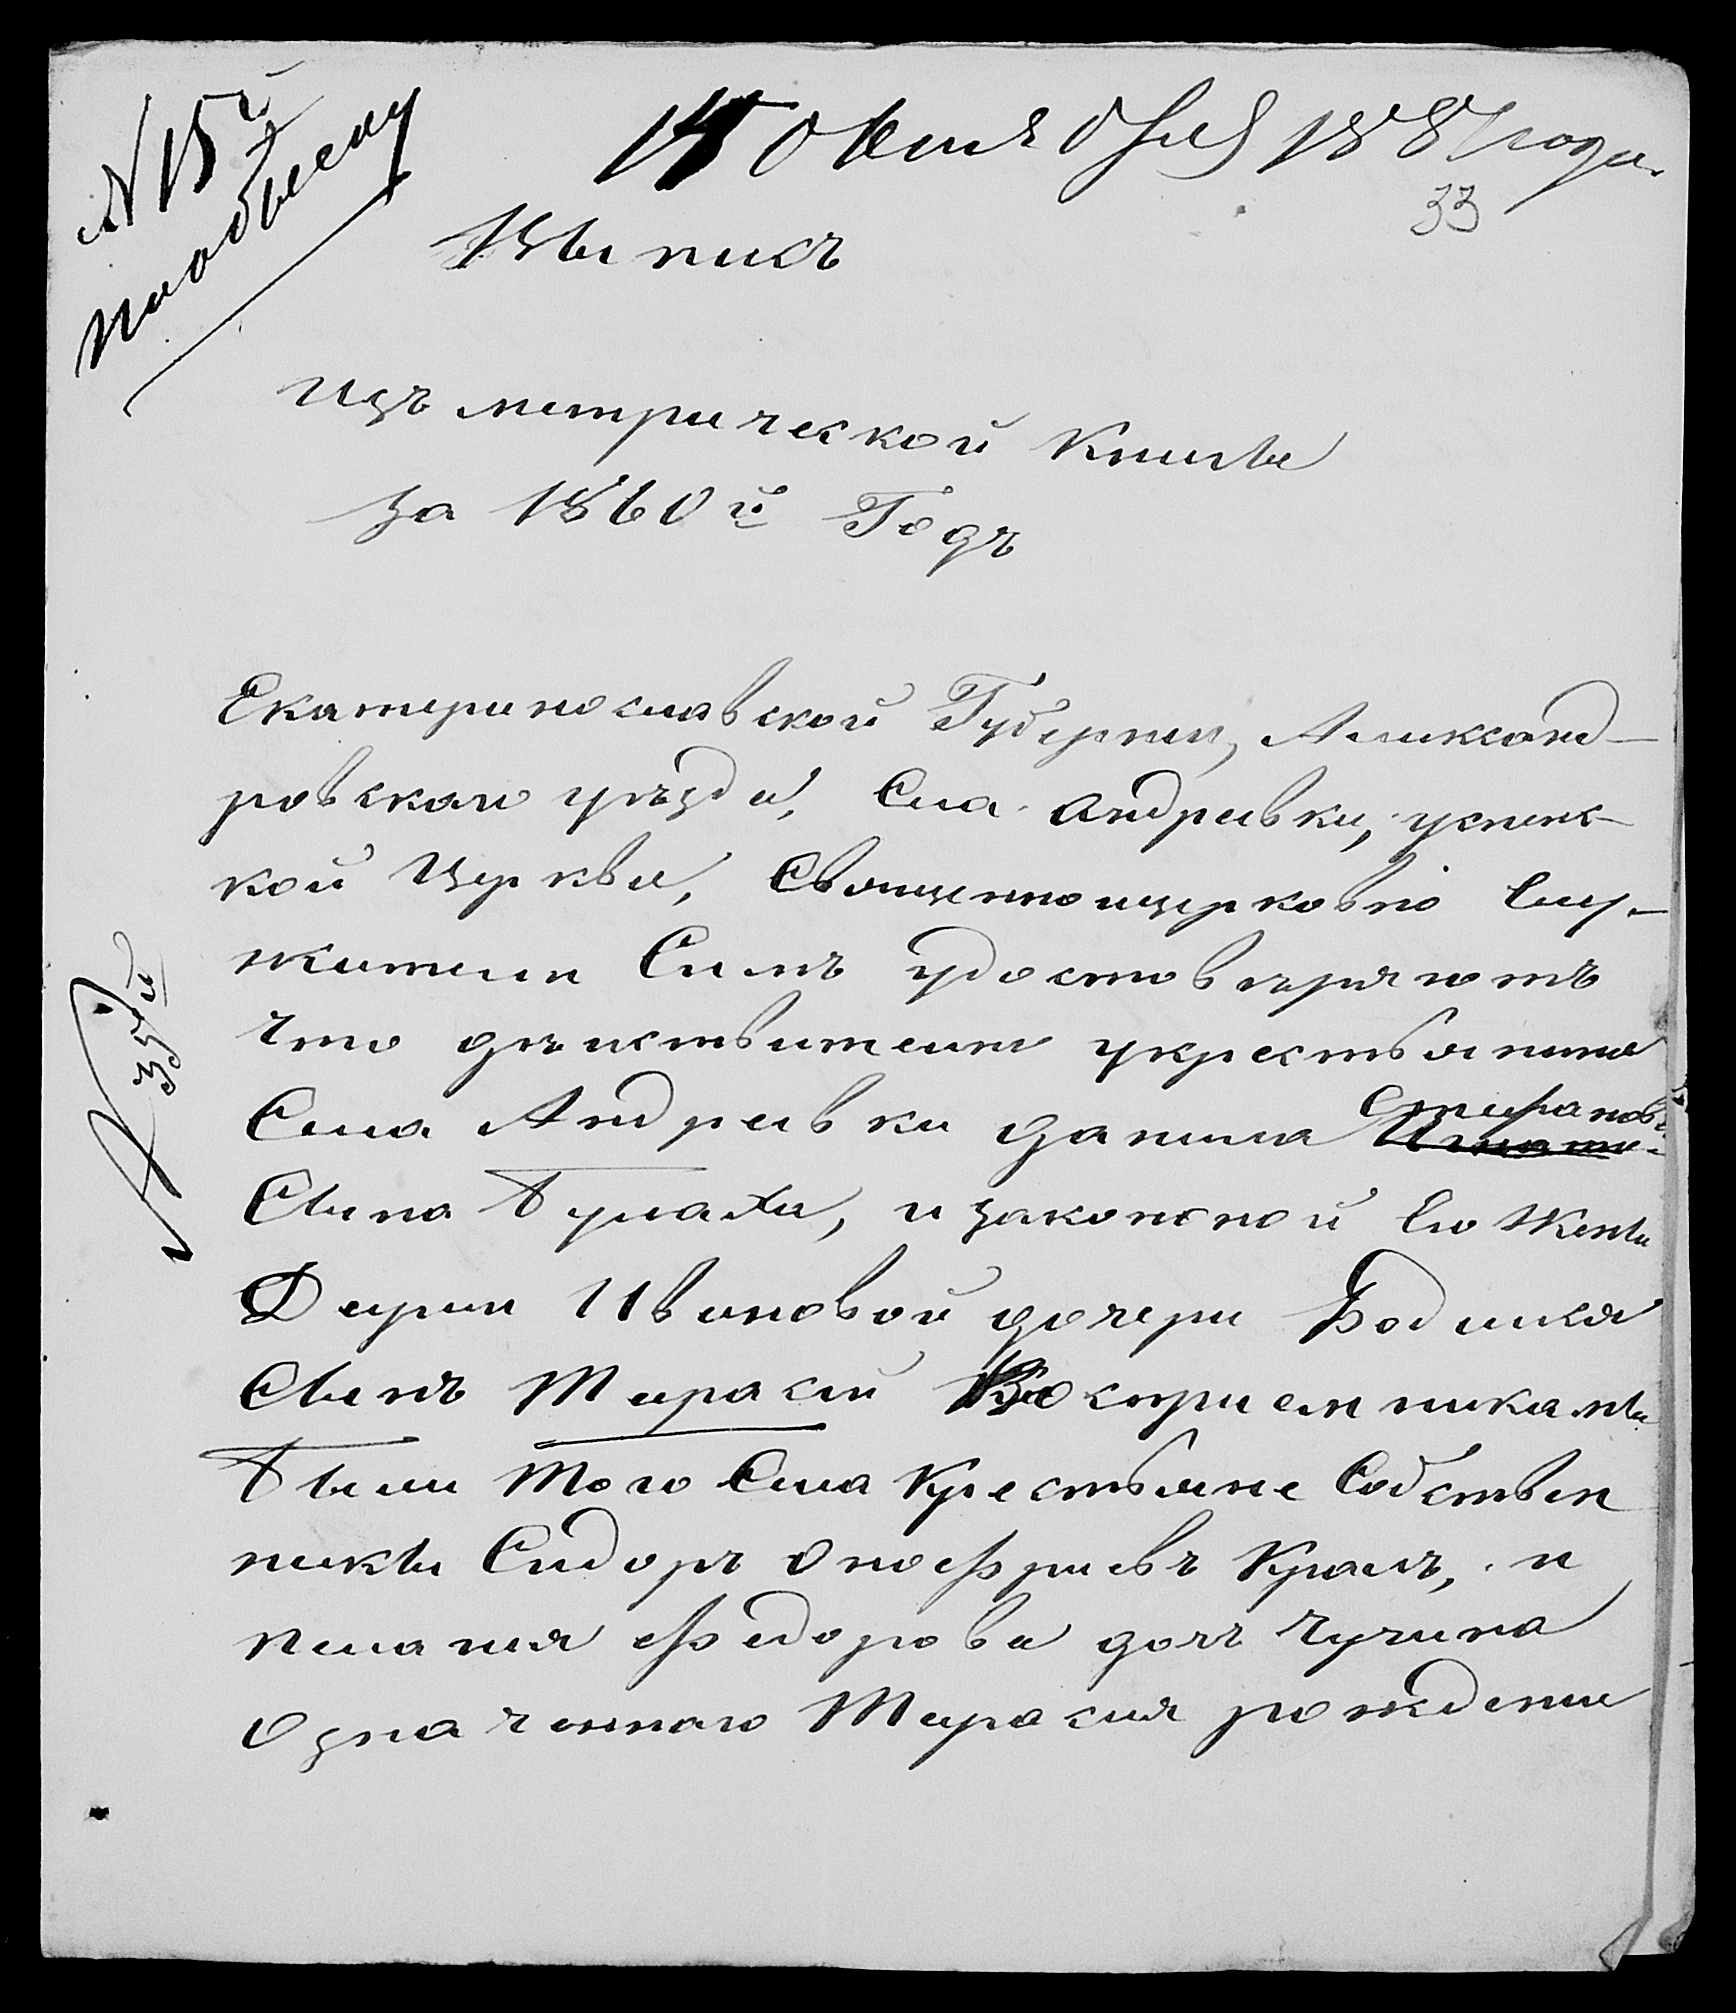 № 15й
пообыску
15 Октября 1881 года.
33
Выпись
Изъ метрической Книги
За 1860й Годъ
Екатеринославской Губерніи, Александ-
ровскаго уѣзда, Села Андреевки, успенс-
кой Церкви, Священноцерковно Слу-
жители Симъ удостовѣряютъ
что дѣйствительно укрестьянина
Села Андреевки Данила Стефанов
Сына Булахи, и законной Его жены
Дарии Ивановой дочери родился
Сынъ Тарасій Воспріемниками
Были того Села Крестьяне Собствен
ники Сидоръ Онофріевъ Кралъ, и
Меланія Федорова дочь
Означеннаго Тарасия рождение
№ 35й